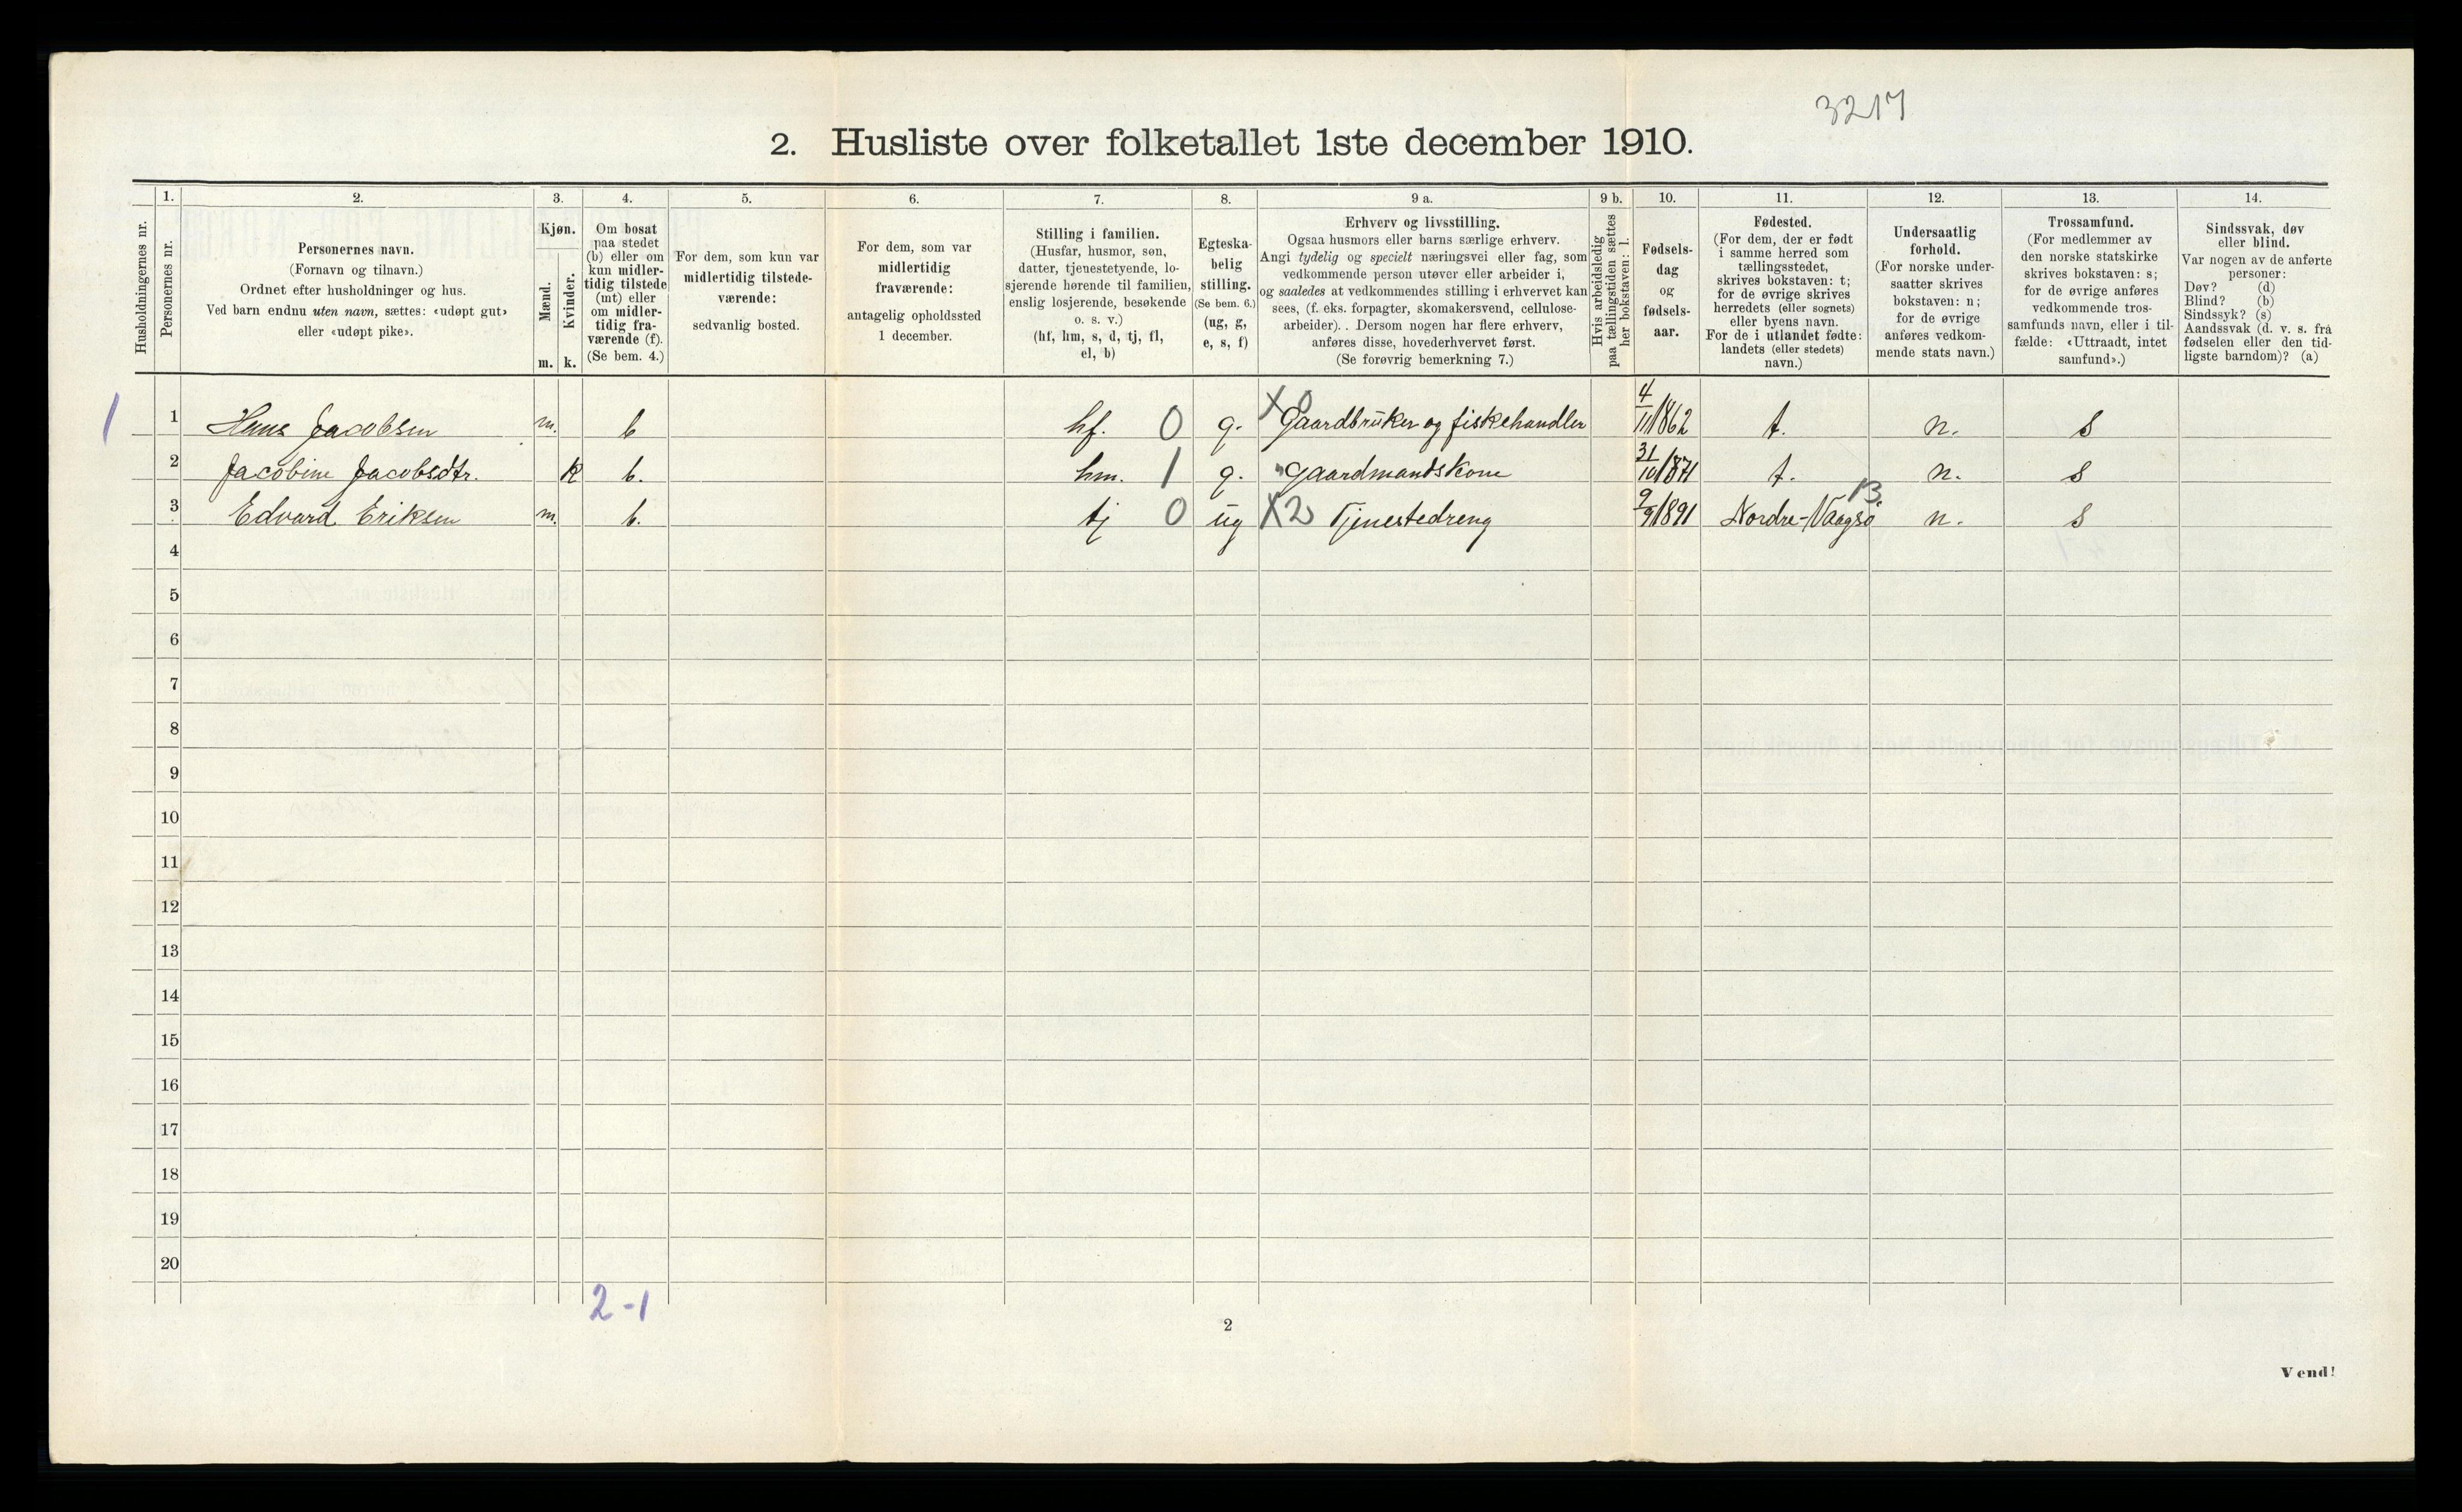 3217
2. Husliste over folketallet 1ste december 1910.
Husholdningernes nr.
1.
Personernes nr.
2.
Personernes navn.
(Fornavn og tilnavn.)
Ordnet efter husholdninger og hus.
Ved barn endnu uten navn, sættes: «udøpt gut»
eller «udøpt pike».
3.
Kjøn.
Mænd.
m.
Kvinder.
k.
4.
Om bosat
paa stedet
(b) eller om
kun midler-
tidig tilstede
(mt) eller
om midler-
tidig fra-
værende (f).
(Se bem. 4.)
5.
For dem, som kun var
midlertidig tilstede-
værende:
sedvanlig bosted.
6.
For dem, som var
midlertidig
fraværende:
antagelig opholdssted
1 december.
7.
Stilling i familien.
(Husfar, husmor, søn,
datter, tjenestetyende, lo-
sjerende hørende til familien,
enslig losjerende, besøkende
o. s. v.)
(hf, hm, s, d, tj, fl,
el, b)
8.
Egteska-
belig
stilling.
(Se bem. 6.)
(ug, g,
e, s, f)
9 a.
Erhverv og livsstilling.
Ogsaa husmors eller barns særlige erhverv.
Angi tydelig og specielt næringsvei eller fag, som
vedkommende person utøver eller arbeider i,
og saaledes at vedkommendes stilling i erhvervet kan
sees, (f. eks. forpagter, skomakersvend, cellulose-
arbeider). . Dersom nogen har flere erhverv,
anføres disse, hovederhvervet først.
(Se forøvrig bemerkning 7.)
9 b.
Hvis arbeidsledig
paa tællingstiden sættes
her bokstaven: l.
10.
Fødsels-
dag
og
fødsels-
aar.
11.
Fødested.
(For dem, der er født
i samme herred som
tællingsstedet,
skrives bokstaven: t;
for de øvrige skrives
herredets (eller sognets)
eller byens navn.
For de i utlandet fødte:
landets (eller stedets)
navn.)
12.
Undersaatlig
forhold.
(For norske under-
saatter skrives
bokstaven: n;
for de øvrige
anføres vedkom-
mende stats navn.)
13.
Trossamfund.
(For medlemmer av
den norske statskirke
skrives bokstaven: s;
for de øvrige anføres
vedkommende tros-
samfunds navn, eller i til-
fælde: «Uttraadt, intet
samfund».)
14.
Sindssvak, døv
eller blind.
Var nogen av de anførte
personer:
Døv? (d)
Blind? (b)
Sindssyk? (s)
Aandssvak (d. v. s. fra
fødselen eller den tid-
ligste barndom)? (a)
1 1 Hans Jacobsen m. b hf. 0 g. X 0 Gaardbruker og fiskehandler 4/11 1862 t. n. s
2 Jacobine Jacobsdtr. k b. hm. 1 g. " Gaardmandskone 31/10 1871 t. n. s
3 Edvard Eriksen m. b. tj 0 ug X2 Tjenestedreng 9/9 1891 Nordre-Vaagsö 13 n. s
4
5
6
7
8
9
10
11
12
13
14
15
16
17
18
19
20
2-1
2
Vend!